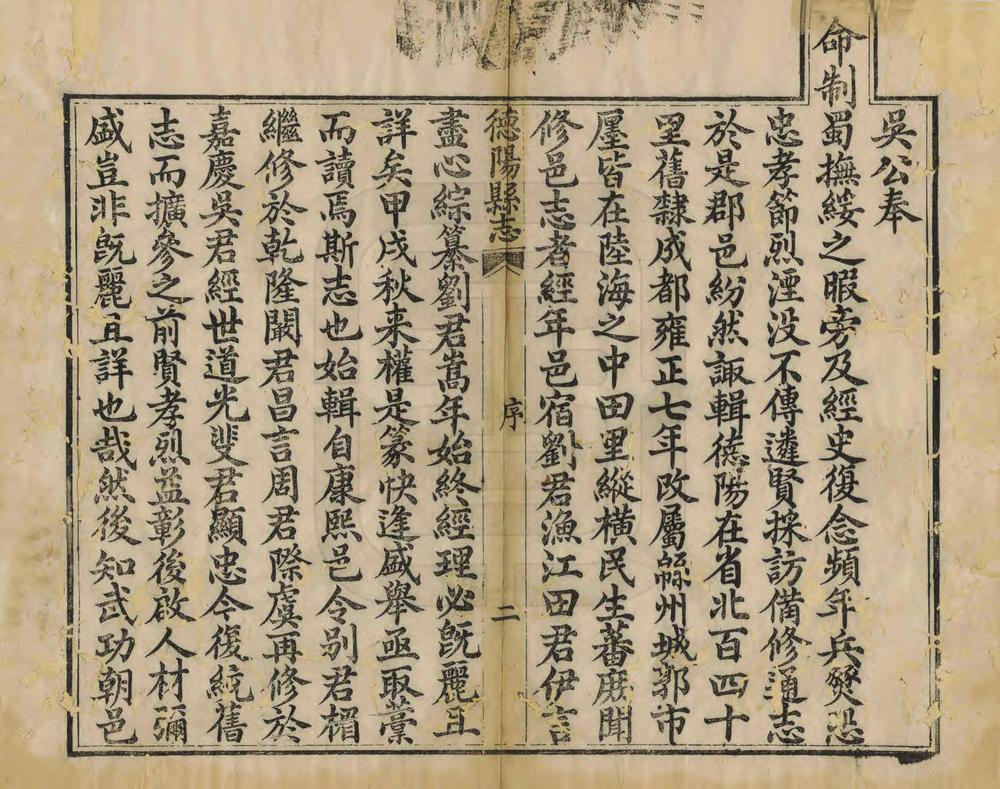 吳公奉
命制蜀撫綏之暇旁及經史復念頻年兵燹恐
忠孝節烈湮没不傳遴賢採訪備修通志
於是郡邑紛然諏輯德陽在省北百四十
里舊隸成都雍正七年改屬緜州城郭市
廛皆在陸海之中田里縱橫民生蕃庶聞
修邑志者經年邑宿劉君漁江田君伊言
德陽縣志 序 二
盡心綜纂劉君嵩年始終經理必旣麗且
詳矣甲戌秋来權是篆快逢盛舉亟取藁
而讀焉斯志也始輯自康熙邑令别君楣
繼修於乾隆闞君昌言周君際虞再修於
嘉慶吳君經世道光斐君顯忠今復統舊
志而擴參之前賢孝烈益彰後啟人材彌
盛豈非旣麗且詳也哉然後知武功朝邑